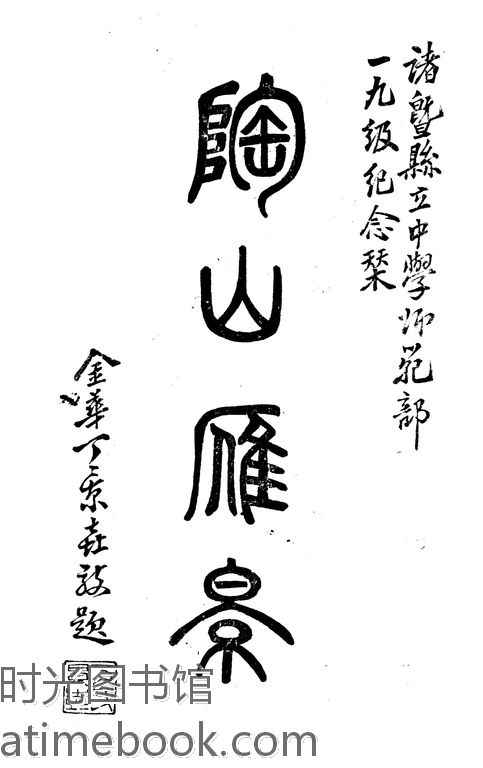 諸曁縣立中學師範部
一九级纪念栞
陶山雁景
金華丁
敬題
时光图书馆
atimebook.com